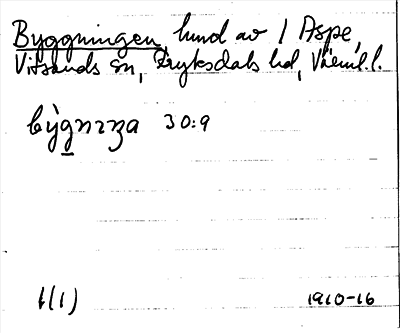 Byggningen, hmd av 1 Aspe,
Vitsands sn, Fryksdals hd, Värml. l.
bỳgnıŋa 30:9
1(1) 1910-16